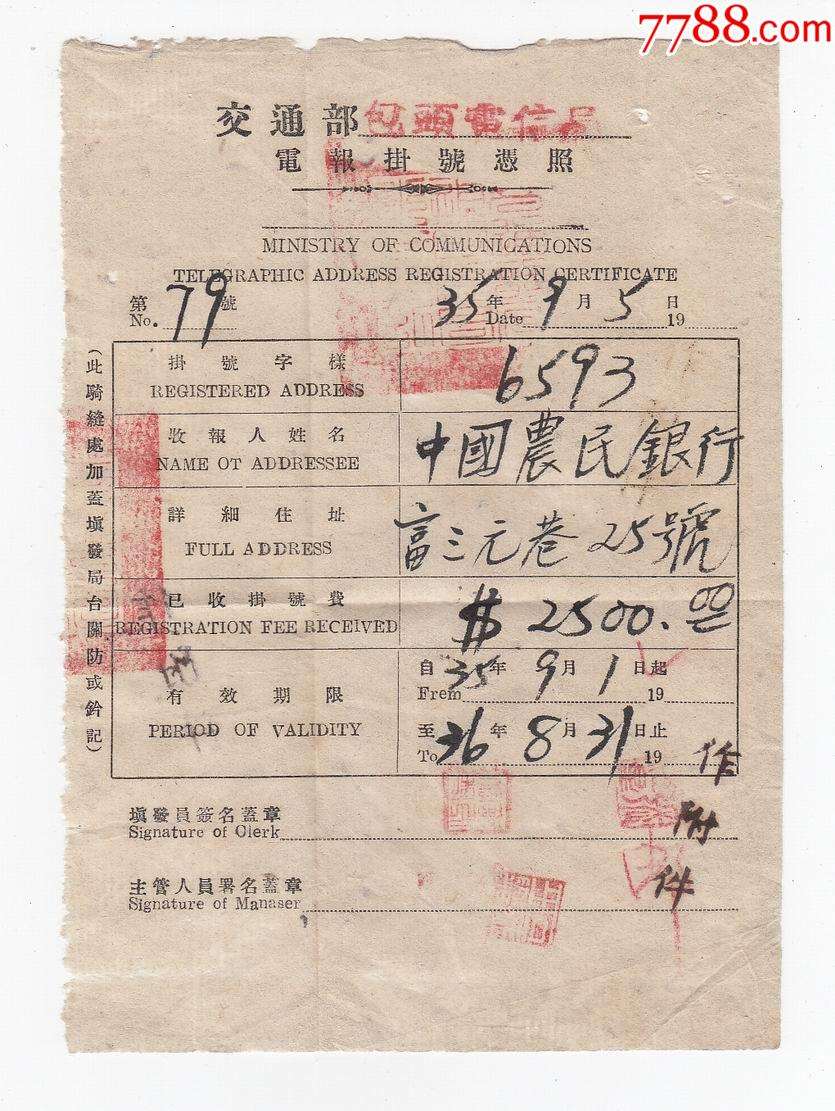 7788.com
交通部包頭電信局
電報掛號憑照
MINISTRY OF COMMUNICATIONS
TELEGRAPHIC ADDRESS REGISTRATION CERTIFICATE
第79號 35年9月5日
No. Date 19
掛號字樣 6593
REGISTERED ADDRESS
收報人姓名 中國農民銀行
NAME OT ADDRESSEE
詳細住址 富三元巷25號
FULL ADDRESS
已收掛號費 $2500.00
REGISTRATION FEE RECEIVED
自35年9月1日起
From 19
有效期限
PERIOD OF VALIDITY
至36年8月31日止
To 19
(此騎縫處加蓋塡發局台關防或鈐記)
作附件
塡發員簽名蓋章
Signature of Olerk
主管人員署名蓋章
Signature of Manaser